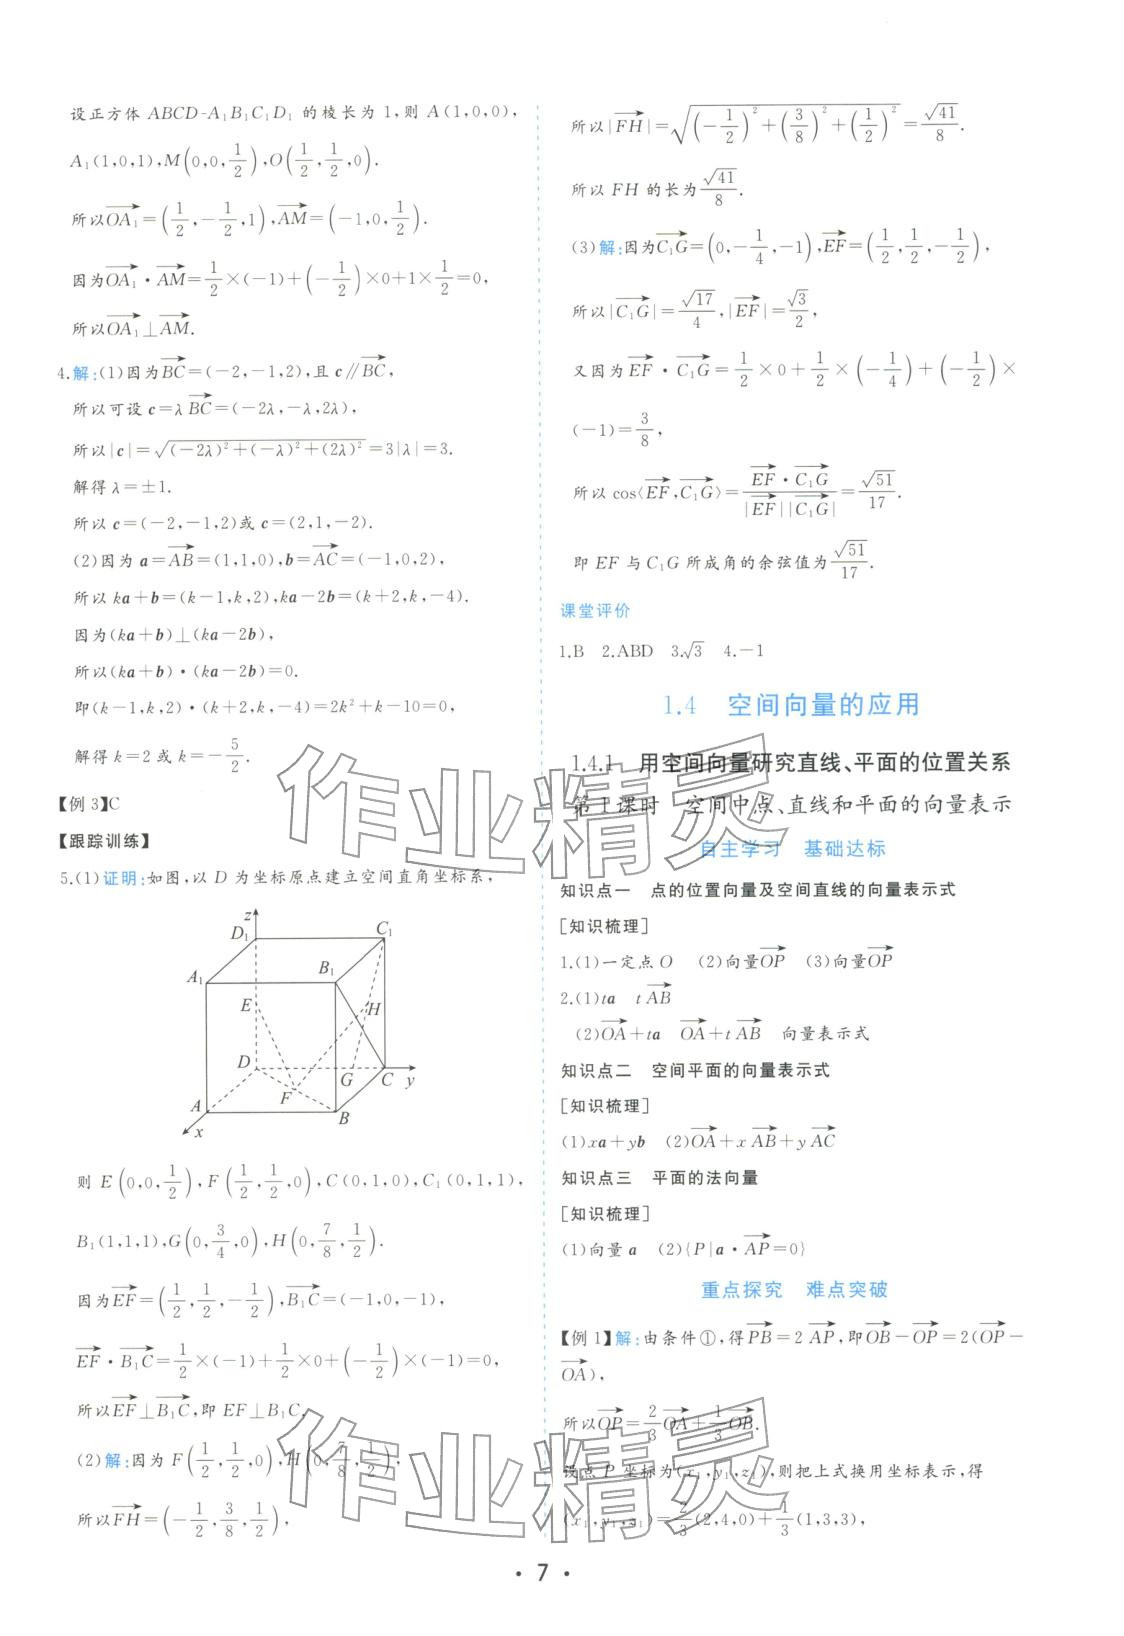 设正方体 ABCD-A₁B₁C₁D₁ 的棱长为 1,则 A(1,0,0),
A₁(1,0,1),M(0,0,1/2),O(1/2,1/2,0).
所以OA₁→=(1/2,-1/2,1),AM→=(-1,0,1/2).
因为OA₁→·AM→=1/2×(-1)+(-1/2)×0+1×1/2=0,
所以OA₁→⊥AM→.
4.解:(1)因为BC→=(-2,-1,2),且 c∥BC→,
所以可设 c=λBC→=(-2λ,-λ,2λ),
所以|c|=√((-2λ)²+(-λ)²+(2λ)²)=3|λ|=3.
解得 λ=±1.
所以 c=(-2,-1,2)或 c=(2,1,-2).
(2)因为 a=AB→=(1,1,0),b=AC→=(-1,0,2),
所以 ka+b=(k-1,k,2),ka-2b=(k+2,k,-4).
因为(ka+b)⊥(ka-2b),
所以(ka+b)·(ka-2b)=0.
即(k-1,k,2)·(k+2,k,-4)=2k²+k-10=0,
解得 k=2 或 k=-5/2.
【例 3】C
【跟踪训练】
5.(1)证明:如图,以 D 为坐标原点建立空间直角坐标系,
z
D₁
C₁
A₁
B₁
E
H
D
G
C
y
F
A
B
x
则 E(0,0,1/2),F(1/2,1/2,0),C(0,1,0),C₁(0,1,1),
B₁(1,1,1),G(0,3/4,0),H(0,7/8,1/2).
因为EF→=(1/2,1/2,-1/2),B₁C→=(-1,0,-1),
EF→·B₁C→=1/2×(-1)+1/2×0+(-1/2)×(-1)=0,
所以EF→⊥B₁C→,即 EF⊥B₁C.
(2)解:因为 F(1/2,1/2,0),H(0,7/8,1/2),
所以FH→=(-1/2,3/8,1/2),
所以|FH→|=√((-1/2)²+(3/8)²+(1/2)²)=√41/8.
所以 FH 的长为√41/8.
(3)解:因为C₁G→=(0,-1/4,-1),EF→=(1/2,1/2,-1/2),
所以|C₁G→|=√17/4,|EF→|=√3/2,
又因为EF→·C₁G→=1/2×0+1/2×(-1/4)+(-1/2)×
(-1)=3/8,
所以 cos⟨EF→,C₁G→⟩=EF→·C₁G→/|EF→||C₁G→|=√51/17.
即 EF 与 C₁G 所成角的余弦值为√51/17.
课堂评价
1.B 2.ABD 3.√3 4.-1
1.4 空间向量的应用
1.4.1 用空间向量研究直线、平面的位置关系
第 1 课时 空间中点、直线和平面的向量表示
自主学习 基础达标
知识点一 点的位置向量及空间直线的向量表示式
[知识梳理]
1.(1)一定点 O (2)向量OP→ (3)向量OP→
2.(1)ta tAB→
(2)OA→+ta OA→+tAB→ 向量表示式
知识点二 空间平面的向量表示式
[知识梳理]
(1)xa+yb (2)OA→+xAB→+yAC→
知识点三 平面的法向量
[知识梳理]
(1)向量 a (2){P|a·AP→=0}
重点探究 难点突破
【例 1】解:由条件①,得PB→=2AP→,即OB→-OP→=2(OP→-
OA→),
所以OP→=2/3OA→+1/3OB→.
设点 P 坐标为(x₁,y₁,z₁),则把上式换用坐标表示,得
(x₁,y₁,z₁)=2/3(2,4,0)+1/3(1,3,3),
· 7 ·
作业精灵
作业精灵